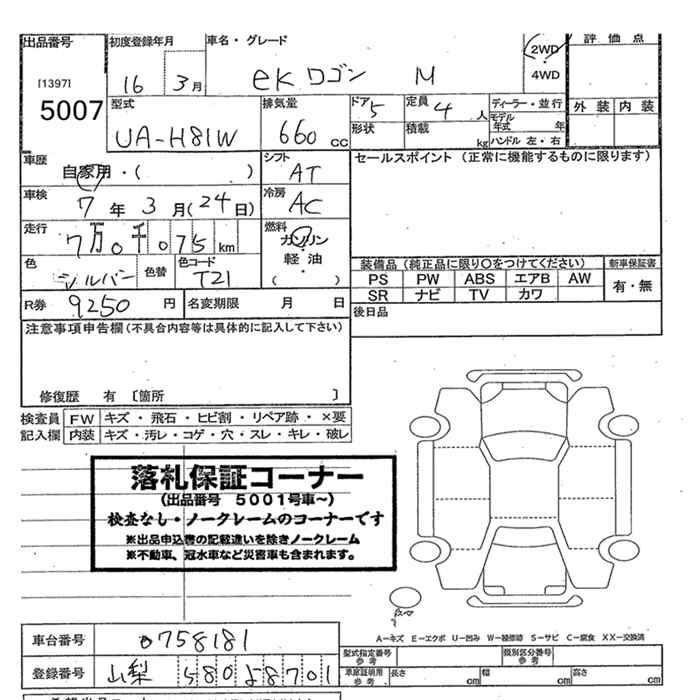 出品番号 初度登録年月 車名・グレード 評価点
[1397] 16 3月 ek ワゴン M 2WD
・
4WD
5007 型式 排気量 ドア 5 定員 4人 ディーラー・並行 外装 内装
UA-H81W 660cc 形状 積載 kg モデル年式 年
ハンドル 左・右
車歴 自家用・( ) シフト AT セールスポイント (正常に機能するものに限ります)
車検 7年3月(24日) 冷房 AC
走行 7万0千075km 燃料 ガソリン
軽油
( )
色 シルバー 色替 色コード T21 装備品 (純正品に限り○をつけてください) 新車保証書
PS PW ABS エアB AW 有・無
R券 9250円 名変期限 月 日 SR ナビ TV カワ
後日品
注意事項申告欄(不具合内容等は具体的に記入して下さい)
修復歴 有 [箇所 ]
検査員 FW キズ・飛石・ヒビ割・リペア跡・×要
記入欄 内装 キズ・汚レ・コゲ・穴・スレ・キレ・破レ
落札保証コーナー
(出品番号 5001号車〜)
検査なし・ノークレームのコーナーです
※出品申込書の記載違いを除きノークレーム
※不動車、冠水車など災害車も含まれます。
A−キズ E−エクボ U−凹み W−補修跡 S−サビ C−腐食 XX−交換済
車台番号 0758181 型式指定番号 参考 類別区分番号 参考
登録番号 山梨 580 よ 8701 車庫証明用 参考 長さ cm 幅 cm 高さ cm